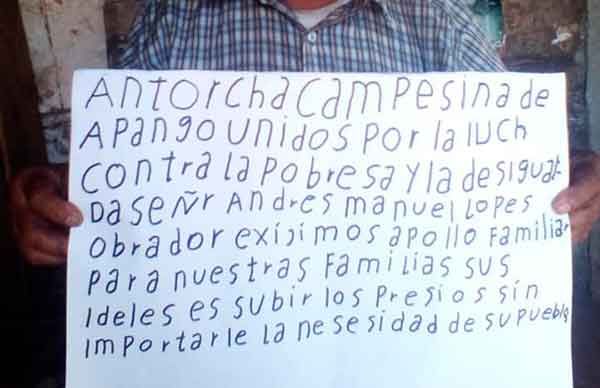 ANTORCHA CAMPESINA de
APANGO UNIDOS POR la lUCh
CONtra la PObresa Y la desiguaL
Da SEÑr ANdres manuel LOPes
Obrador exijimos apollo Familiar
Para nuestras Familias sus
Ideles es subir los Presios sin
Importarle la nesesidad de su Pueblo